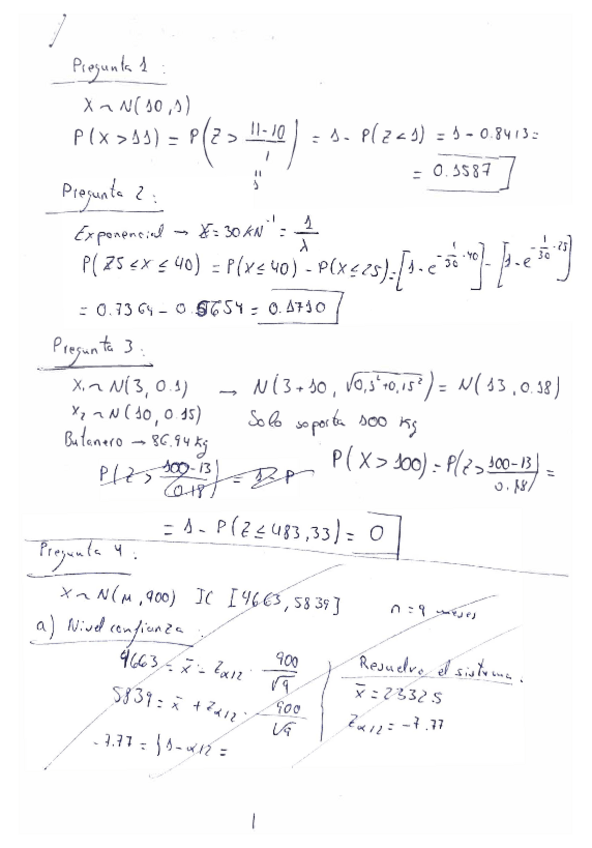 Pregunta 1:
X ~ N(10,1)
P(X > 11) = P(Z > (11-10)/1) = 1 - P(Z < 1) = 1 - 0.8413 =
= 0.1587
Pregunta 2:
Exponencial → x̄ = 30 KN⁻¹ = 1/λ
P(25 ≤ x ≤ 40) = P(x ≤ 40) - P(x ≤ 25) = [1 - e^(-1/30·40)] - [1 - e^(-1/30·25)]
= 0.7364 - 0.5654 = 0.1710
Pregunta 3:
X₁ ~ N(3, 0.1) → N(3+10, √(0,1²+0,15²)) = N(13, 0.18)
X₂ ~ N(10, 0.15) Solo soporta 100 Kg
Butanero → 86.94 kg
P(Z > (100-13)/(0.18)) = 1 - P P(X > 100) = P(Z > (100-13)/0.18) =
= 1 - P(Z ≤ 483,33) = 0
Pregunta 4:
X ~ N(μ, 900) IC [4663, 5839] n = 9 meses
a) Nivel confianza:
4663 = x̄ - Zα/2 · 900/√9 Resuelvo el sistema.
5839 = x̄ + Zα/2 · 900/√9 x̄ = 2332.5
-7.77 = {1-α/2 = Zα/2 = -7.77
1